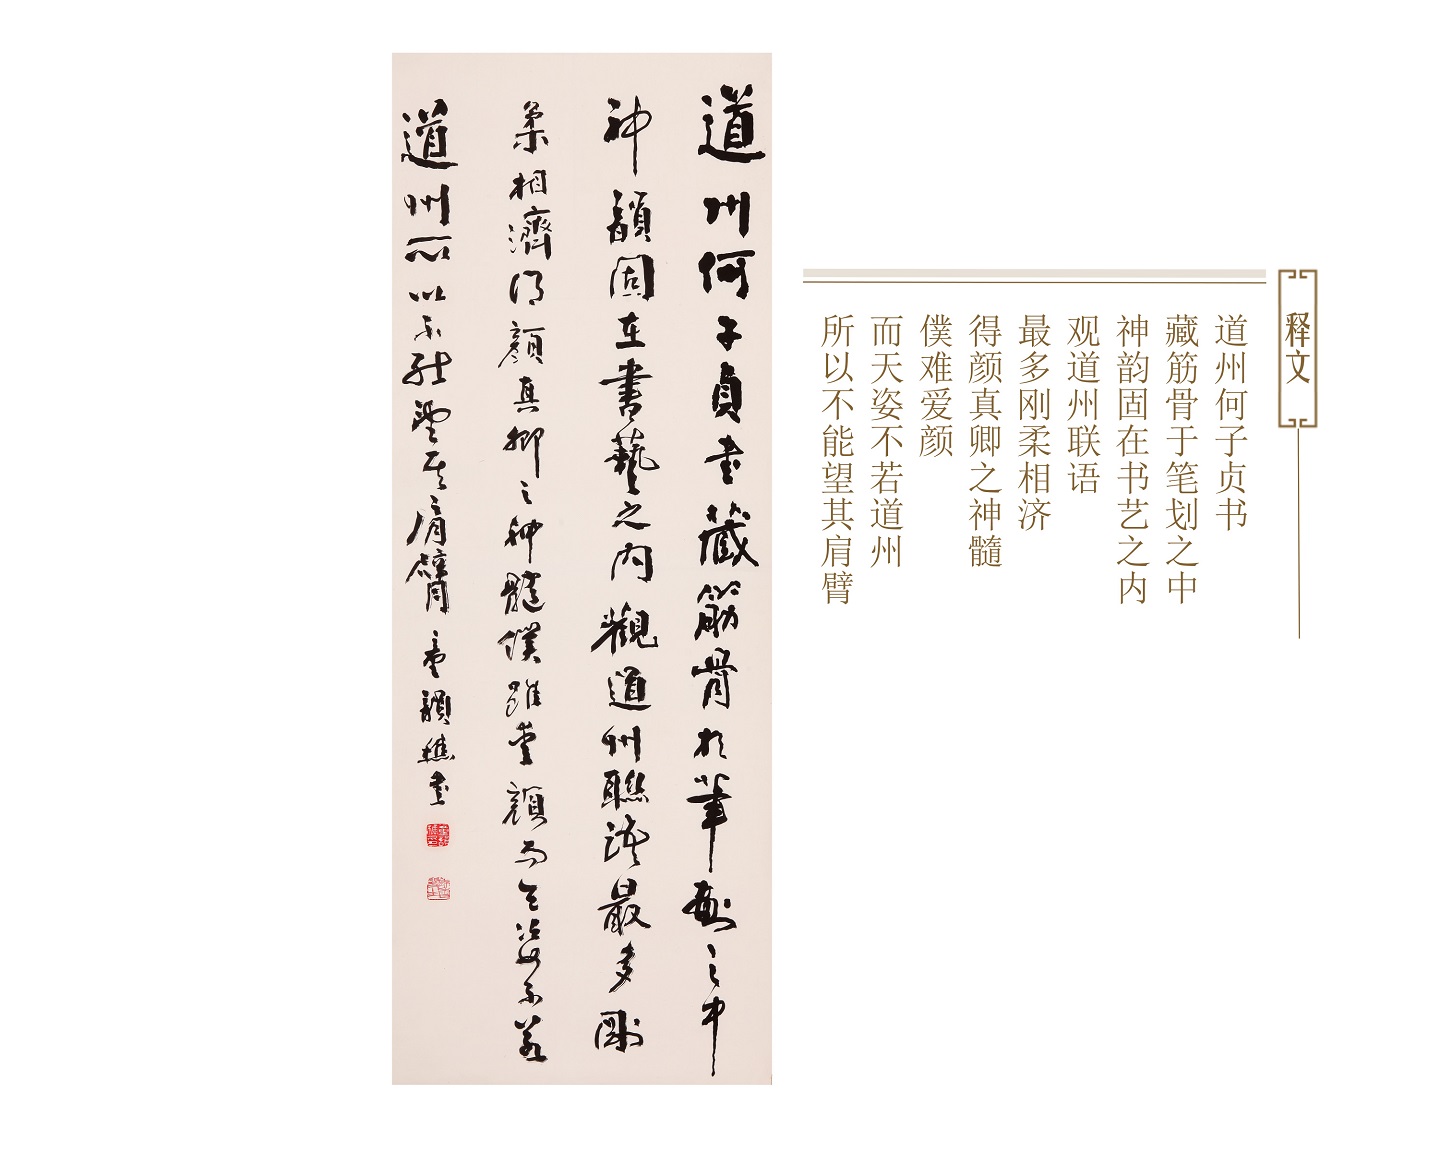 道州何子貞書藏筋骨於筆劃之中
神韻固在書藝之內觀道州聯語最多剛
柔相濟得顏真卿之神髓僕雖愛顏而天姿不若
道州所以不能望其肩臂童韻樵書
释文
道州何子贞书
藏筋骨于笔划之中
神韵固在书艺之内
观道州联语
最多刚柔相济
得颜真卿之神髓
僕难爱颜
而天姿不若道州
所以不能望其肩臂